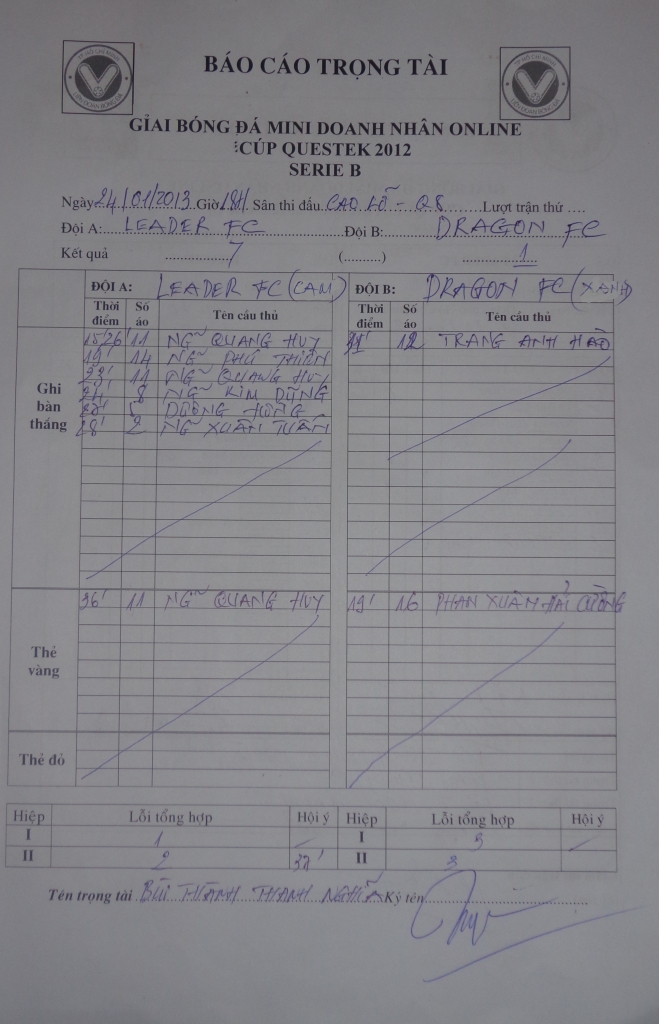 BÁO CÁO TRỌNG TÀI
GIẢI BÓNG ĐÁ MINI DOANH NHÂN ONLINE
CÚP QUESTEK 2012
SERIE B
Ngày: 24/01/2013 Giờ 18H Sân thi đấu CAO LỖ - Q8 Lượt trận thứ ....
Đội A: LEADER FC Đội B: DRAGON FC
Kết quả 7 (..........) 1
ĐỘI A: LEADER FC (CAM) ĐỘI B: DRAGON FC (XANH)
Thời điểm Số áo Tên cầu thủ Thời điểm Số áo Tên cầu thủ
Ghi bàn thắng
15'26' 11 NG~ QUANG HUY 12 TRANG ANH HÀO
19' 14 NG~ PHÚ THIÊN
23' 11 NG~ QUANG HUY
24' 8 NG~ KIM DŨNG
5 DƯƠNG HỒNG
28' 2 NG~ XUÂN TUẤN
Thẻ vàng
36' 11 NG~ QUANG HUY 19' 16 PHAN XUÂN HẢI CƯỜNG
Thẻ đỏ
Hiệp Lỗi tổng hợp Hội ý Hiệp Lỗi tổng hợp Hội ý
I 1 I 3
II 2 37' II 3
Tên trọng tài BÙI THÀNH THANH NGHĨA Ký tên